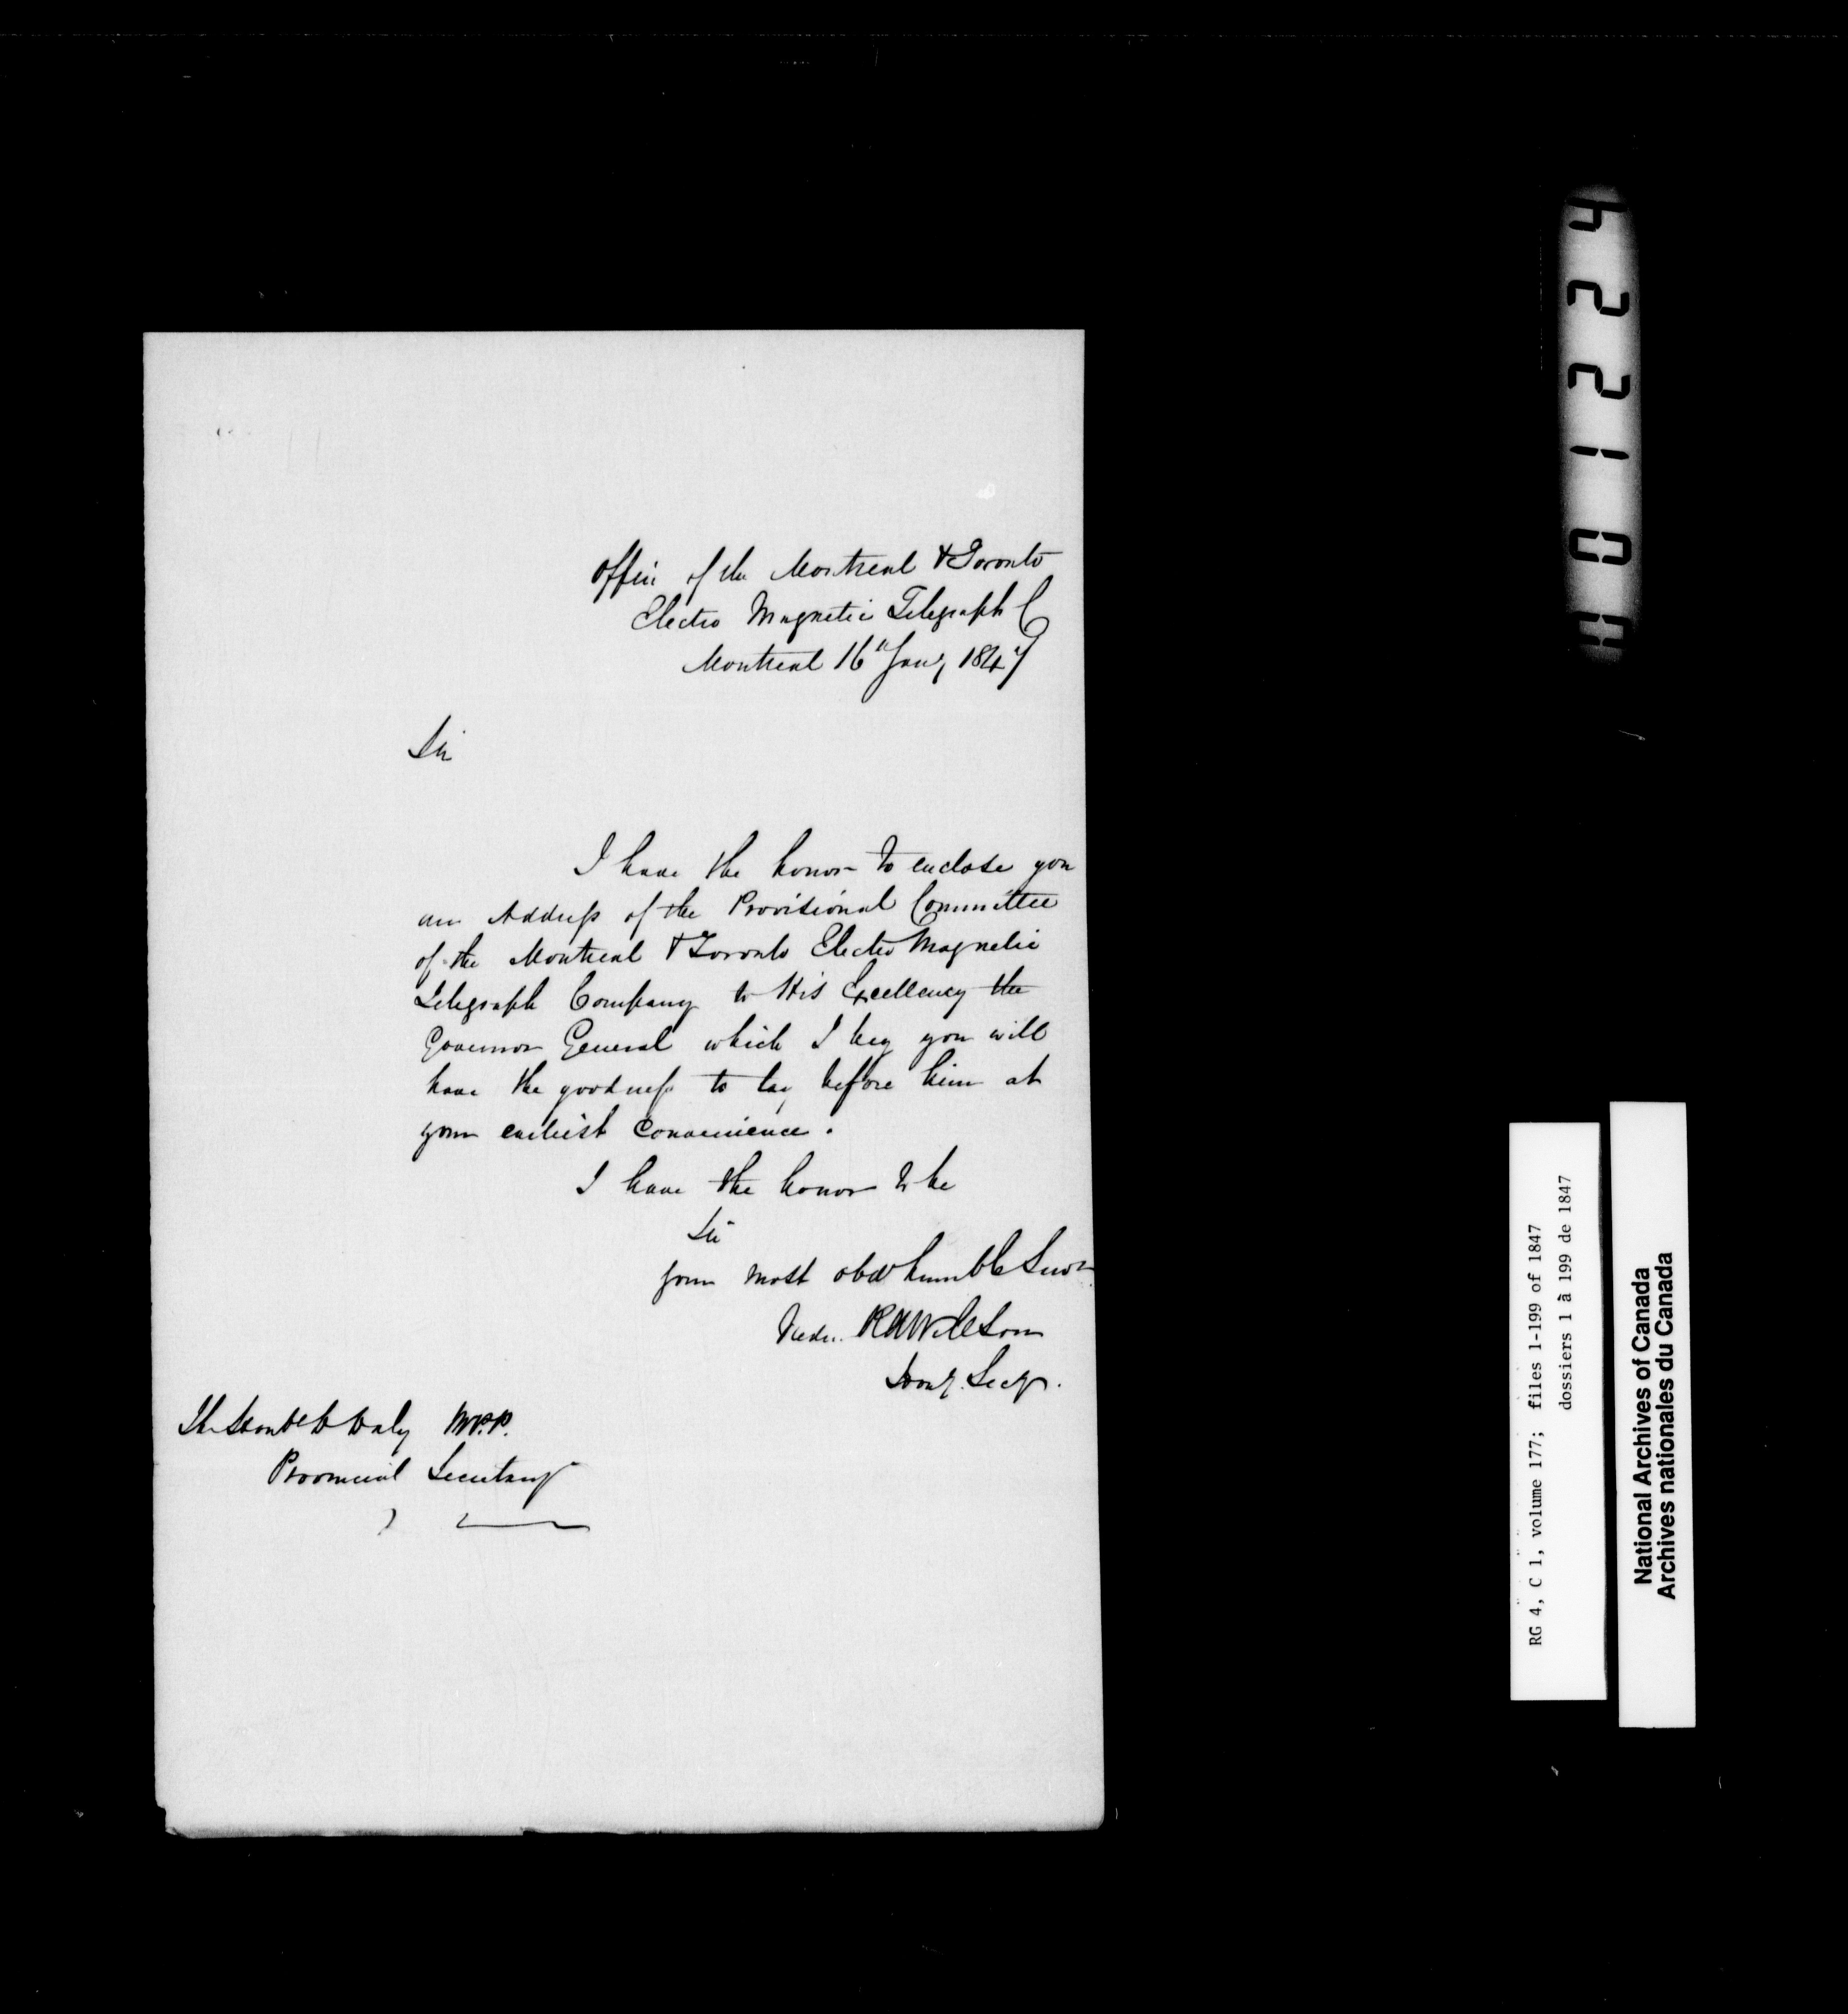 Office of the Montreal & Toronto
Electro Magnetic Telegraph Co
Montreal 16th Jany 1847
Sir
I have the honor to enclose you
an Address of the Provisional Committee
of the Montreal & Toronto Electro Magnetic
Telegraph Company to His Excellency the
Governor General which I beg you will
have the goodness to lay before him at
your earliest convenience.
I have the honor to be
Sir
your most obdt humble Servt
Wilson
Secy.
The Honble D Daly M.P.P.
Provincial Secretary
H 01224
RG 4, C 1, volume 177; files 1-199 of 1847
dossiers 1 à 199 de 1847
National Archives of Canada
Archives nationales du Canada